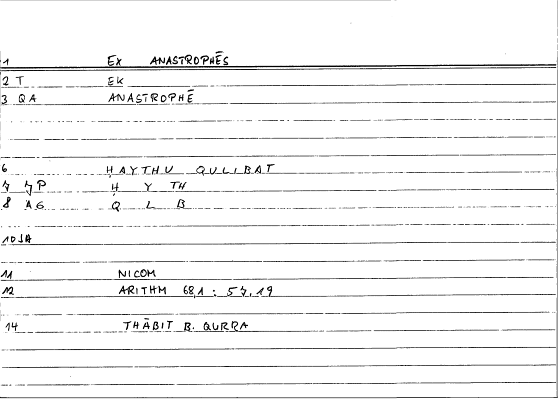 1 EX ANASTROPHĒS
2 T EK
3 QA ANASTROPHĒ
6 ḤAYTHU QULIBAT
7 7P Ḥ Y TH
8 AG Q L B
10 JA
11 NICOM
12 ARITHM 68,1 : 57,19
14 THĀBIT B. QURRA